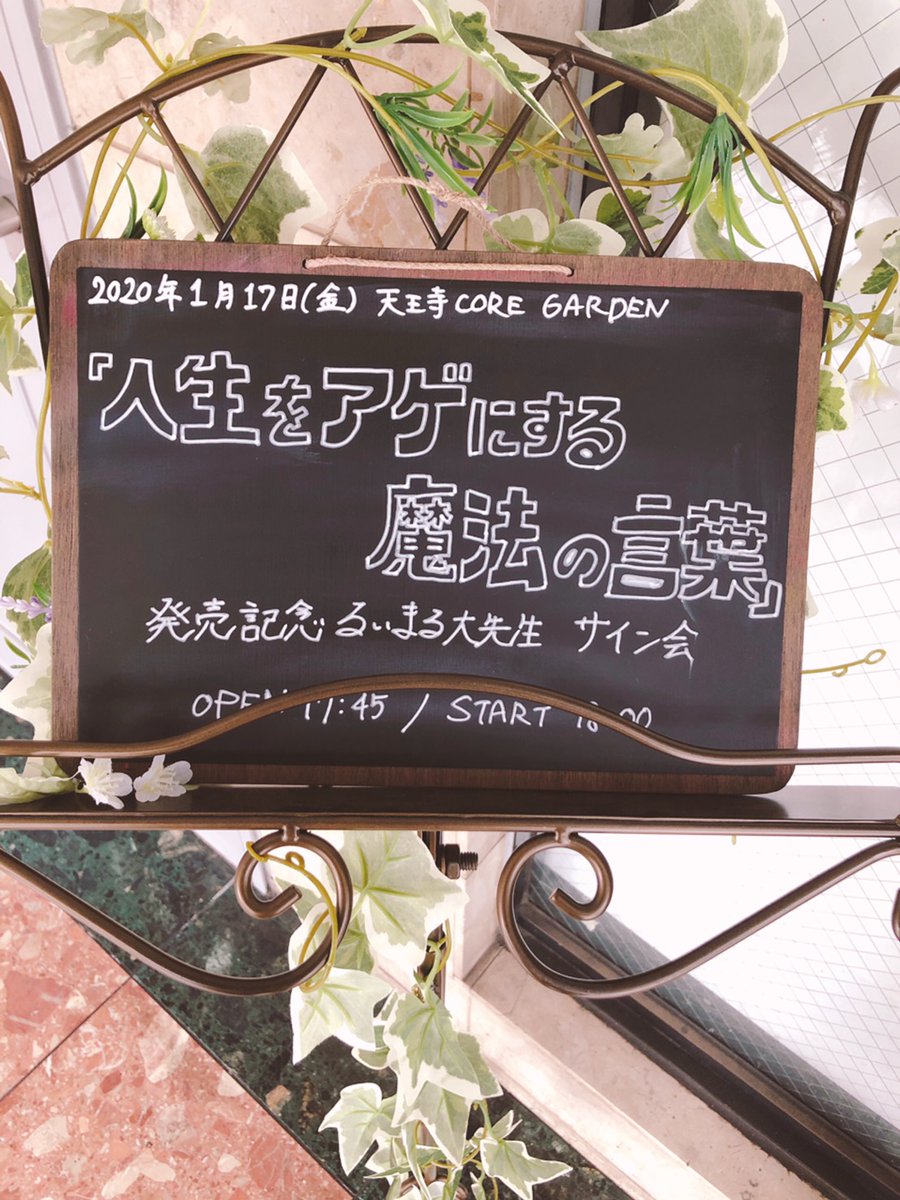 2020年1月17日(金) 天王寺CORE GARDEN
『人生をアゲにする
魔法の言葉』
発売記念 るぃまる大先生 サイン会
OPEN 17:45 / START 18:00